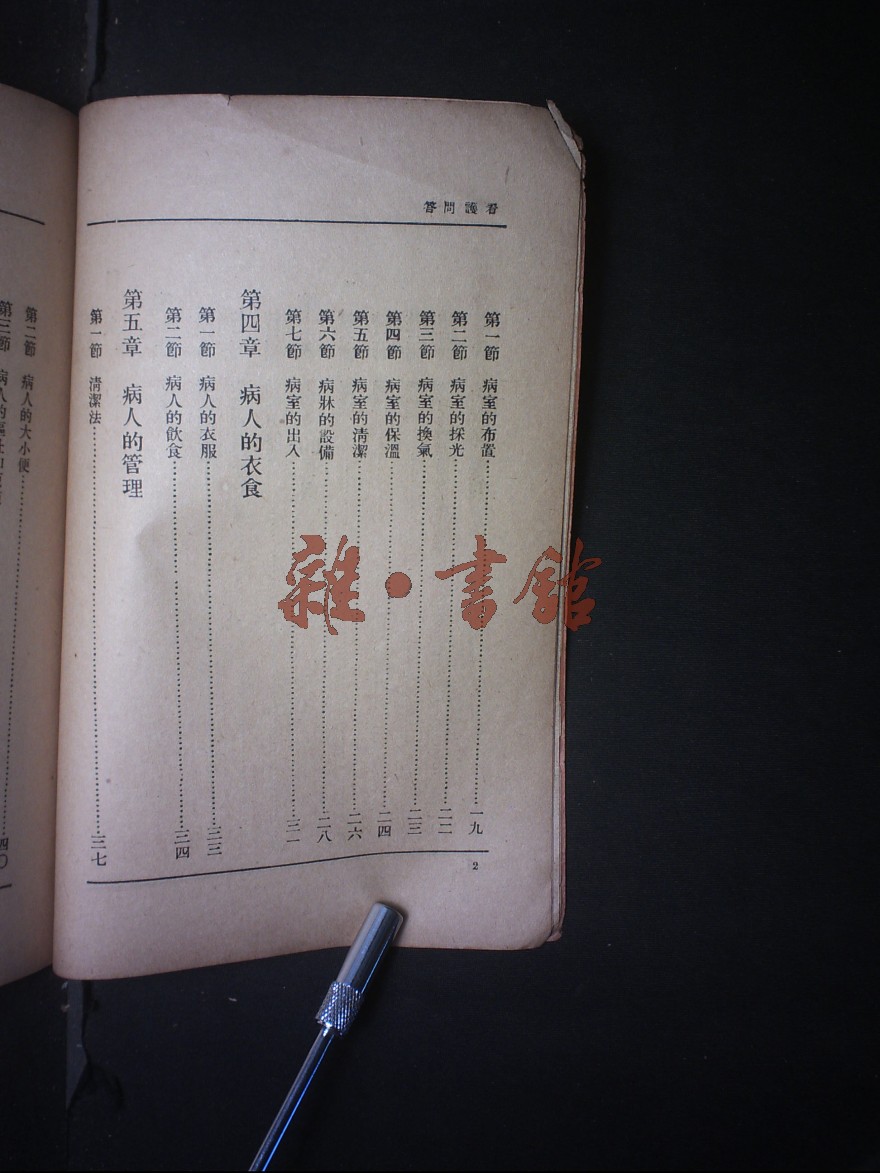 看護問答
第一節 病室的布置……一九
第二節 病室的採光……二二
第三節 病室的換氣……二三
第四節 病室的保溫……二四
第五節 病室的清潔……二六
第六節 病牀的設備……二八
第七節 病室的出入……三一
第四章 病人的衣食
第一節 病人的衣服……三三
第二節 病人的飲食……三四
第五章 病人的管理
第一節 清潔法……三七
2
第二節 病人的大小便……四〇
第三節 病人的
雜·書館